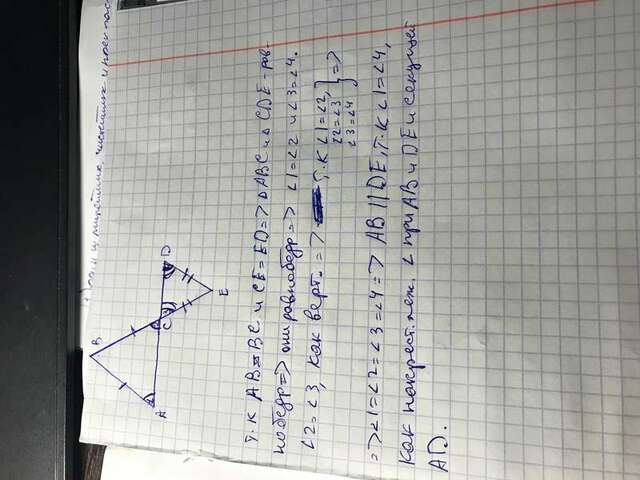 и циркулик, чистейник и
B
A
C
D
E
Т.К AB=BC и CE=ED=> △ABC и △ CDE-рав-
нобедр=> они равнобедр=> ∠1=∠2 и ∠3=∠4.
∠2=∠3, как верт. => Т.К ∠1=∠2,
∠2=∠3
∠3=∠4
} =>
=>∠1=∠2=∠3=∠4=> AB || DE, т.к ∠1=∠4,
как накрест. леж. ∠ при AB и DE и секущей
AD.